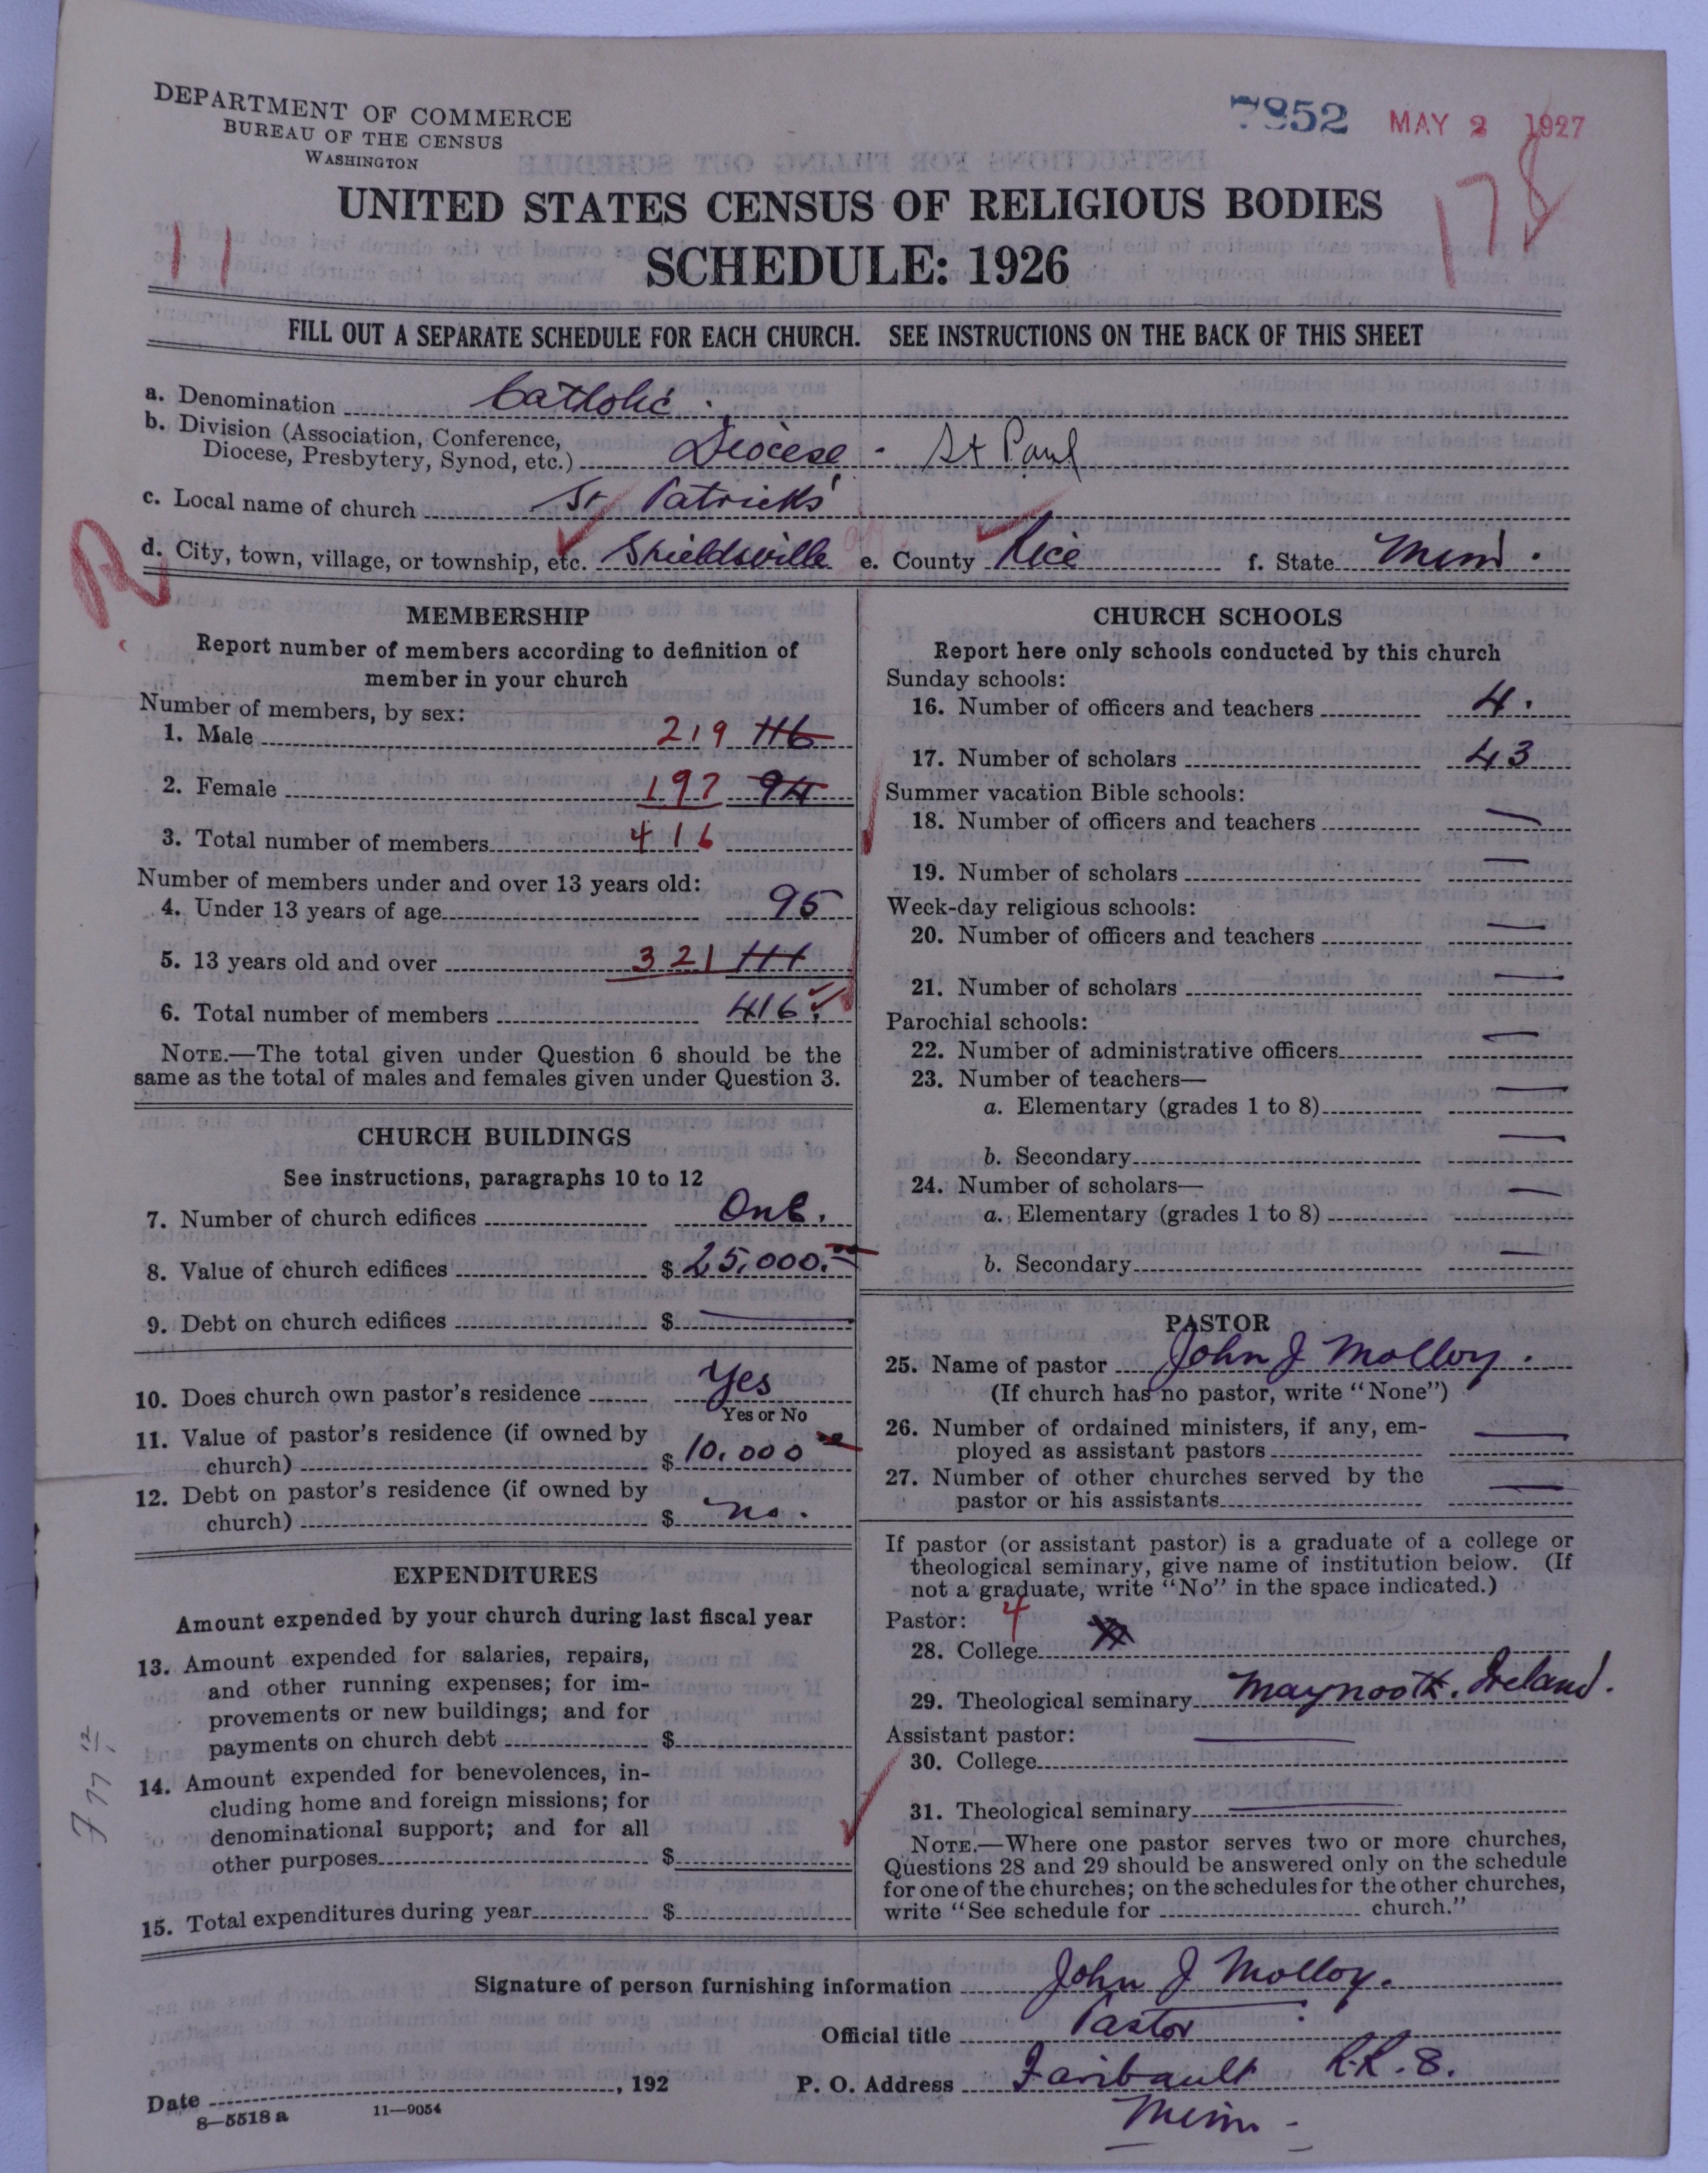 DEPARTMENT OF COMMERCE
BUREAU OF THE CENSUS
WASHINGTON
7852 MAY 2 1927
178
11
UNITED STATES CENSUS OF RELIGIOUS BODIES
SCHEDULE: 1926
FILL OUT A SEPARATE SCHEDULE FOR EACH CHURCH. SEE INSTRUCTIONS ON THE BACK OF THIS SHEET
a. Denomination Catholic.
b. Division (Association, Conference,
Diocese, Presbytery, Synod, etc.) Diocese - St Paul
c. Local name of church St Patricks'
R
d. City, town, village, or township, etc. Shieldsville e. County Rice f. State Minn.
MEMBERSHIP
Report number of members according to definition of
member in your church
Number of members, by sex:
1. Male 219 116
2. Female 197 94
3. Total number of members 416
Number of members under and over 13 years old:
4. Under 13 years of age 95
5. 13 years old and over 321 111
6. Total number of members 416.
NOTE.—The total given under Question 6 should be the
same as the total of males and females given under Question 3.
CHURCH BUILDINGS
See instructions, paragraphs 10 to 12
7. Number of church edifices One.
8. Value of church edifices $ 25,000.
9. Debt on church edifices $ —
10. Does church own pastor's residence Yes
Yes or No
11. Value of pastor's residence (if owned by
church) $ 10,000
12. Debt on pastor's residence (if owned by
church) $ no.
EXPENDITURES
Amount expended by your church during last fiscal year
13. Amount expended for salaries, repairs,
and other running expenses; for im-
provements or new buildings; and for
payments on church debt $
14. Amount expended for benevolences, in-
cluding home and foreign missions; for
denominational support; and for all
other purposes $
15. Total expenditures during year $
CHURCH SCHOOLS
Report here only schools conducted by this church
Sunday schools:
16. Number of officers and teachers 4.
17. Number of scholars 43
Summer vacation Bible schools:
18. Number of officers and teachers —
19. Number of scholars —
Week-day religious schools:
20. Number of officers and teachers —
21. Number of scholars —
Parochial schools:
22. Number of administrative officers —
23. Number of teachers—
a. Elementary (grades 1 to 8) —
b. Secondary —
24. Number of scholars—
a. Elementary (grades 1 to 8) —
b. Secondary —
PASTOR
25. Name of pastor John J Molloy.
(If church has no pastor, write "None")
26. Number of ordained ministers, if any, em-
ployed as assistant pastors —
27. Number of other churches served by the
pastor or his assistants —
If pastor (or assistant pastor) is a graduate of a college or
theological seminary, give name of institution below. (If
not a graduate, write "No" in the space indicated.)
Pastor: 4
28. College
29. Theological seminary Maynooth. Ireland.
Assistant pastor:
30. College —
31. Theological seminary —
NOTE.—Where one pastor serves two or more churches,
Questions 28 and 29 should be answered only on the schedule
for one of the churches; on the schedules for the other churches,
write "See schedule for church."
Signature of person furnishing information John J Molloy.
Official title Pastor
Date , 192 P. O. Address Faribault R.R. 8.
Minn -
8—5518 a 11—9054